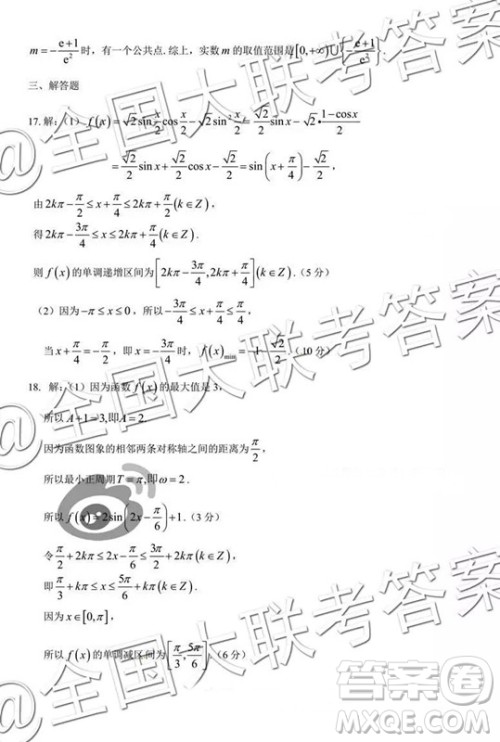 m=-\frac{e+1}{e^2}时，有一个公共点.综上，实数m的取值范围是[0,+∞)∪{-\frac{e+1}{e^2}}.
三、解答题
17.解：（1）f(x)=√2sin\frac{x}{2}cos\frac{x}{2}-√2sin²\frac{x}{2}=\frac{√2}{2}sinx-√2·\frac{1-cosx}{2}
=\frac{√2}{2}sinx+\frac{√2}{2}cosx-\frac{√2}{2}=sin(x+\frac{π}{4})-\frac{√2}{2}，
由2kπ-\frac{π}{2}≤x+\frac{π}{4}≤2kπ+\frac{π}{2}(k∈Z)，
得2kπ-\frac{3π}{4}≤x≤2kπ+\frac{π}{4}(k∈Z).
则f(x)的单调递增区间为[2kπ-\frac{3π}{4},2kπ+\frac{π}{4}](k∈Z).（5分）
（2）因为-π≤x≤0，所以-\frac{3π}{4}≤x+\frac{π}{4}≤\frac{π}{4}，
当x+\frac{π}{4}=-\frac{π}{2}，即x=-\frac{3π}{4}时，f(x)min=-1-\frac{√2}{2}.（10分）
18. 解：（1）因为函数f(x)的最大值是3，
所以A+1=3,即A=2.
因为函数图象的相邻两条对称轴之间的距离为\frac{π}{2}，
所以最小正周期T=π,即ω=2.
所以f(x)=2sin(2x-\frac{π}{6})+1.（3分）
令\frac{π}{2}+2kπ≤2x-\frac{π}{6}≤\frac{3π}{2}+2kπ(k∈Z)，
即\frac{π}{3}+kπ≤x≤\frac{5π}{6}+kπ(k∈Z)，
因为x∈[0,π]，
所以f(x)的单调减区间为[\frac{π}{3},\frac{5π}{6}].（6分）
@全国大联考答案
@全国大联考答案
@全国大联考答案
答案圈
MXQE.COM